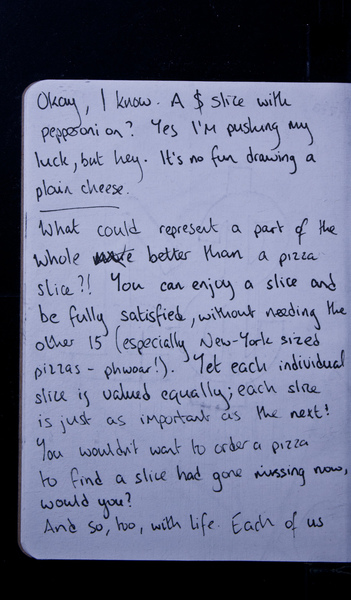 Okay, I know. A $ slice with
pepperoni on? Yes I'm pushing my
luck, but hey. It's no fun drawing a
plain cheese.
What could represent a part of the
whole better than a pizza
slice?! You can enjoy a slice and
be fully satisfied, without needing the
other 15 (especially New-York sized
pizzas - phwoar!). Yet each individual
slice is valued equally; each slice
is just as important as the next!
You wouldn't want to order a pizza
to find a slice had gone missing now,
would you?
And so, too, with life. Each of us